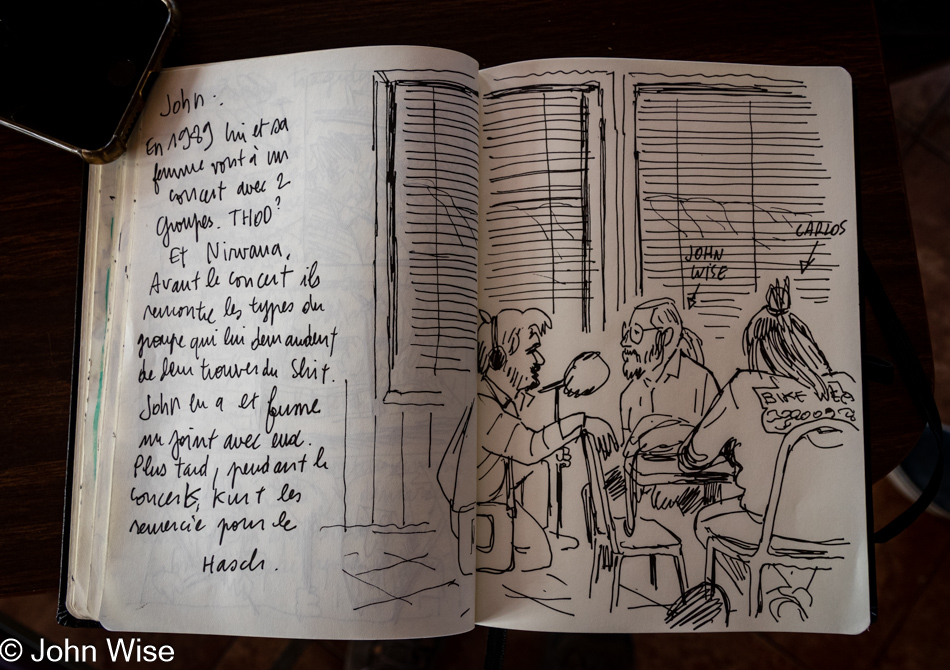 John.
En 1989 lui et sa
femme vont à un
concert avec 2
groupes. THOD?
Et Nirvana.
Avant le concert ils
rencontre les types du
groupe qui lui demandent
de leur trouver du Shit.
John en a et fume
un joint avec eux.
Plus tard, pendant le
concerts, Kurt les
remercie pour le
Hasch.
JOHN
WISE
CARLOS
BIKE WEB
© John Wise